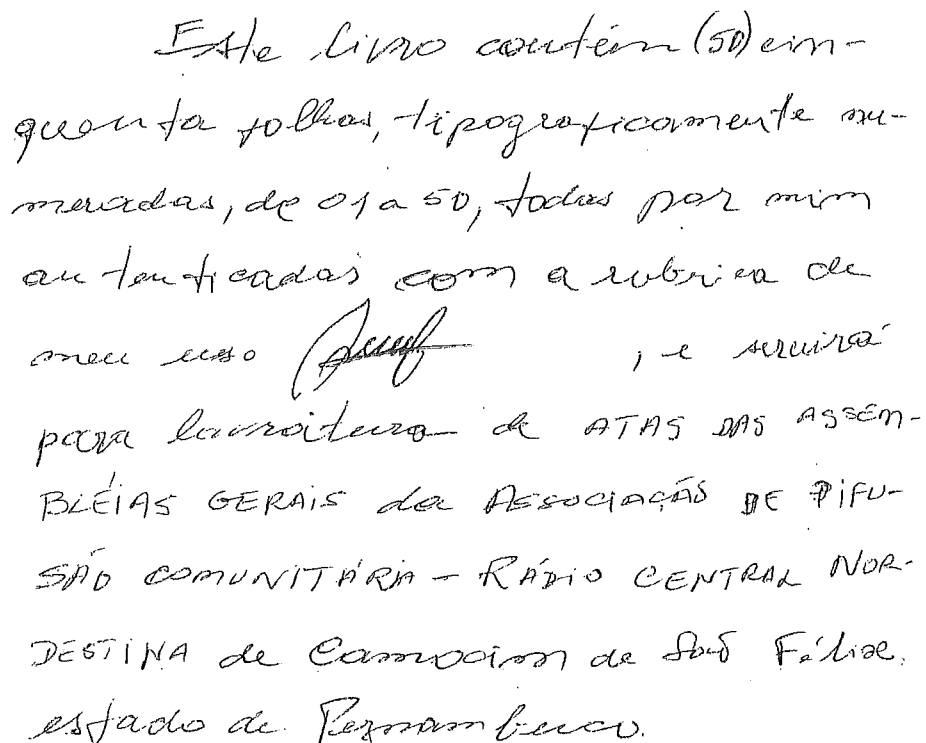 Este livro contém (50) cin-
quenta folhas, tipograficamente nu-
meradas, de 01 a 50, todas por mim
autenticadas com a rubrica de
meu uso , e servirá
para lavratura de ATAS DAS ASSEM-
BLÉIAS GERAIS da ASSOCIAÇÃO DE DIFU-
SÃO COMUNITÁRIA - RÁDIO CENTRAL NOR-
DESTINA de Camocim de São Félix.
estado de Pernambuco.